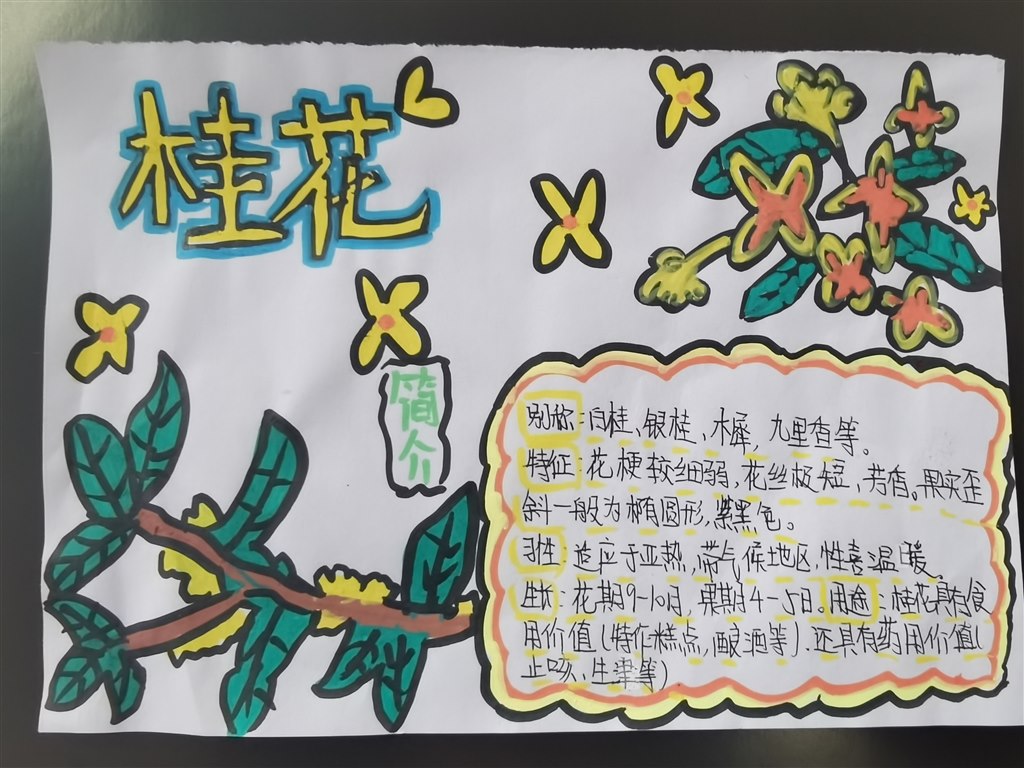 桂花
简介
别称:白桂、银桂、木犀,九里香等。
特征:花梗较细弱,花丝极短,芳香。果实歪
斜一般为椭圆形,紫黑色。
习性:适应于亚热带气候地区,性喜温暖。
生长:花期9-10月,果期4-5日。用途:桂花具有食
用价值(特作糕点,酿酒等).还具有药用价值(
止咳、生津等)